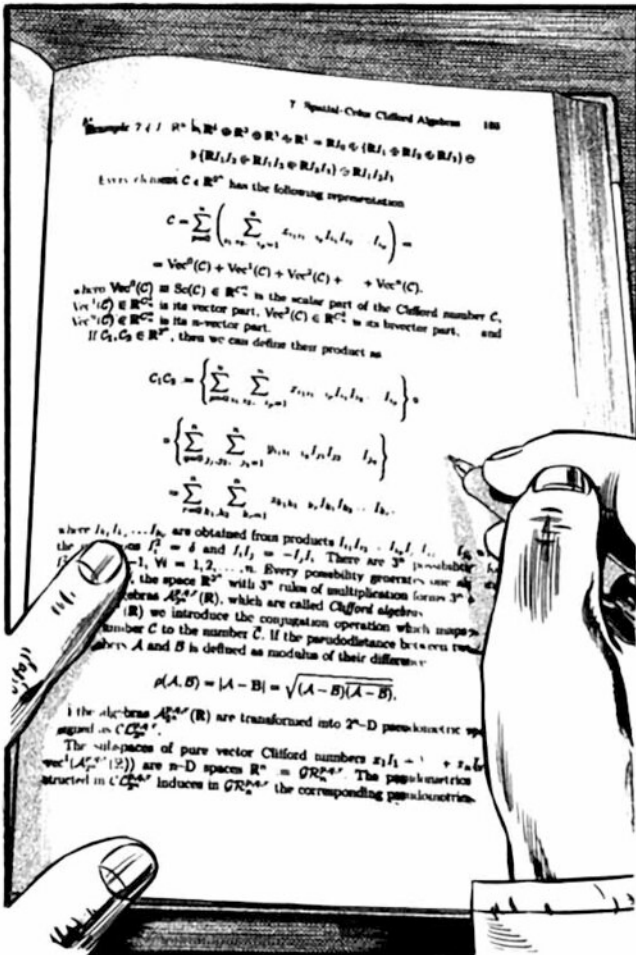 7 Spatial-Color Clifford Algebras 185
Example 7.4.1 R^{2^n} = R^1 ⊕ R^3 ⊕ R^3 ⊕ R^1 = RJ_0 ⊕ {RJ_1 ⊕ RJ_2 ⊕ RJ_3} ⊕
⊕ {RJ_1J_2 ⊕ RJ_1J_3 ⊕ RJ_2J_3} ⊕ RJ_1J_2J_3
Every element C ∈ R^{2^n} has the following representation
C = \sum_{p=0}^{n} ( \sum_{i_1 i_2 i_p=1}^{n} x_{i_1 i_2 i_p} I_{i_1} I_{i_2} I_{i_p} ) =
= Vec^0(C) + Vec^1(C) + Vec^2(C) + + Vec^n(C).
where Vec^0(C) ≡ Sc(C) ∈ R^{C_n^0} is the scalar part of the Clifford number C,
Vec^1(C) ∈ R^{C_n^1} is its vector part, Vec^2(C) ∈ R^{C_n^2} is its bivector part, and
Vec^n(C) ∈ R^{C_n^n} is its n-vector part.
If C_1, C_2 ∈ R^{2^n}, then we can define their product as
C_1C_2 = { \sum_{p=0}^{n} \sum_{i_1 i_2 i_p=1}^{n} x_{i_1 i_2 i_p} I_{i_1} I_{i_2} I_{i_p} } •
• { \sum_{q=0}^{n} \sum_{j_1 j_2 j_q=1}^{n} y_{j_1 j_2 j_q} I_{j_1} I_{j_2} I_{j_q} }
= \sum_{r=0}^{n} \sum_{k_1 k_2 k_r=1}^{n} z_{k_1 k_2 k_r} I_{k_1} I_{k_2} I_{k_r}
where are obtained from products
the and I_iI_j = -I_jI_i. There are 3^n possibilit
-1, ∀i = 1, 2, ..., n. Every possibility generates one al
, the space R^{2^n} with 3^n rules of multiplication forms 3^n
ebras A_{2^n}^{p,q,r}(R), which are called Clifford algebra
(R) we introduce the conjugation operation which maps
umber C to the number C̄. If the pseudodistance between tw
bers A and B is defined as modulus of their difference
ρ(A, B) = |A − B| = \sqrt{(A − B)\overline{(A − B)}},
the algebras A_{2^n}^{p,q,r}(R) are transformed into 2^n-D pseudometric sp
signed as CL_{2^n}^{p,q,r}.
The subspaces of pure vector Clifford numbers x_1I_1 + + x_nI
vec^1(A_{2^n}^{p,q,r}(R)) are n-D spaces R^n = GR_n^{p,q,r}. The pseudometrics
structed in CL_{2^n}^{p,q,r} induces in GR_n^{p,q,r} the corresponding pseudometrics